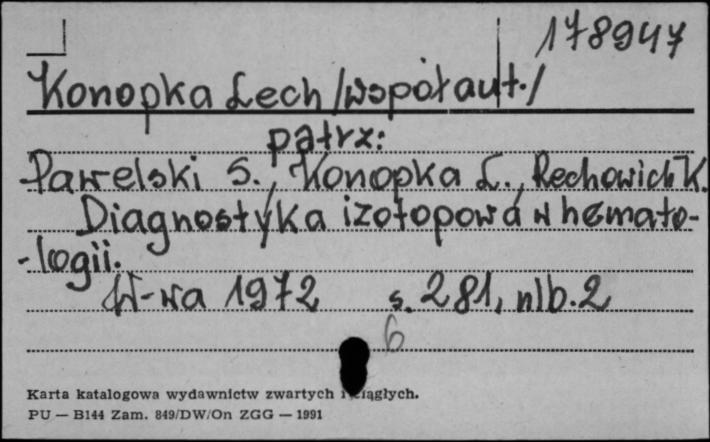 178947
Konopka Lech /współaut./
patrz:
Pawelski S., Konopka L., Rechowicz K.
Diagnostyka izotopowa w hemato-
-logii.
W-wa 1972 s. 281, nlb. 2
6
Karta katalogowa wydawnictw zwartych i ciągłych.
PU — B144 Zam. 849/DW/On ZGG — 1991